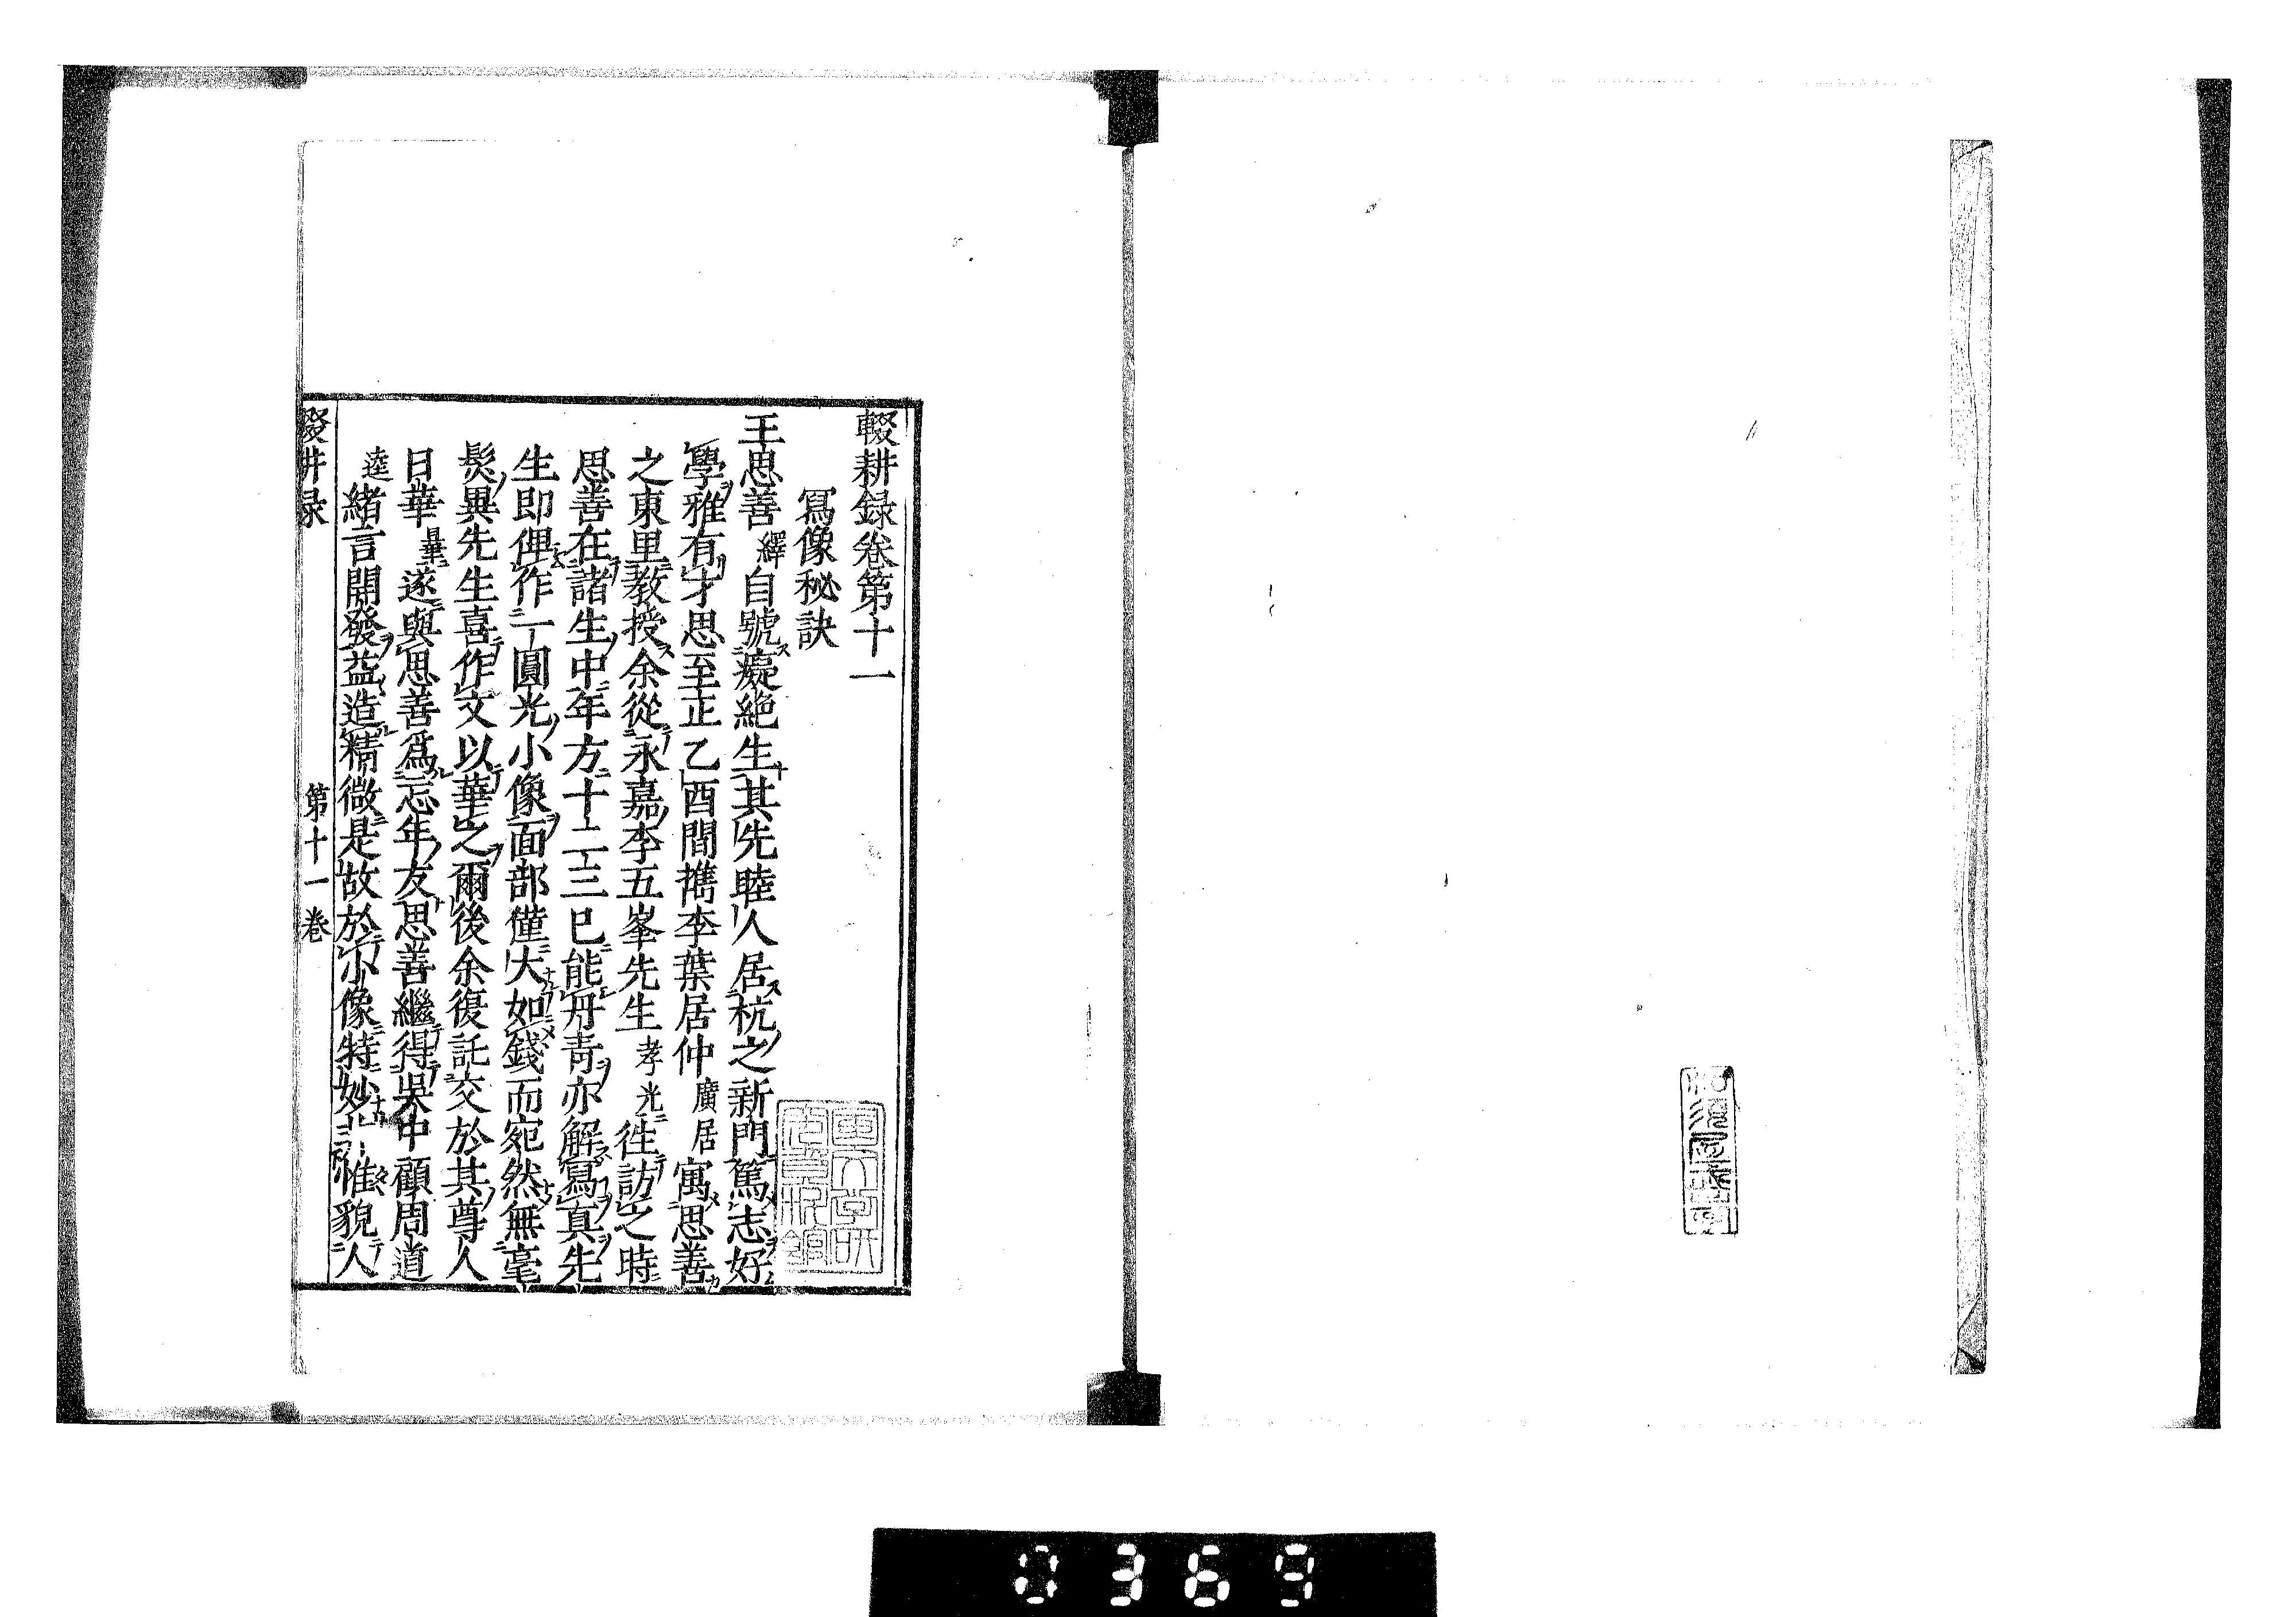 輟耕録卷第十一
冩像秘訣
王思善繹自號癡絶生其先睦人居杭之新門篤志好
學雅有才思至正乙酉間擕李葉居仲廣居寓思善
之東里教授余從永嘉李五峯先生孝光徃訪之時
思善在諸生中年方十二三巳能丹青亦解冩真先
生即俾作一圓光小像面部僅大如錢而宛然無毫
髮異先生喜作文以華之爾後余復託交於其尊人
日華曄遂與思善爲忘年友思善繼得吳中顧周道
逵緒言開發益造精微是故於小像特妙非惟貌人
輟耕录
第十一卷
0369